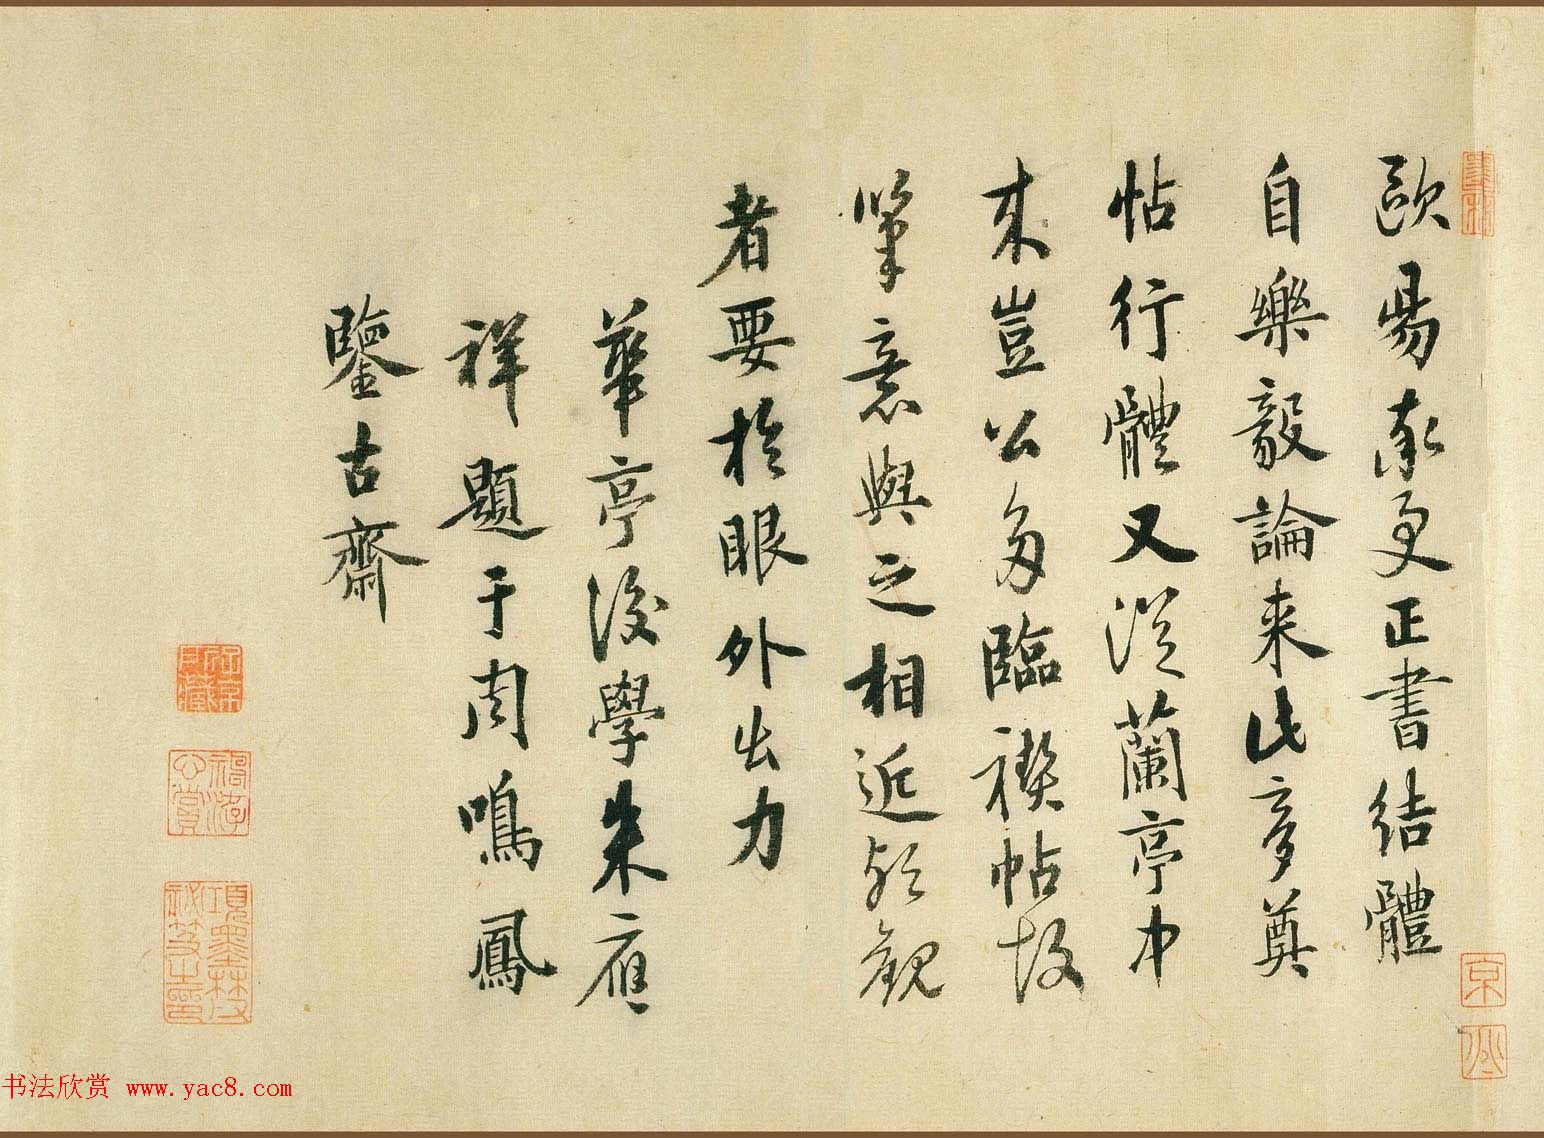 歐陽率更正書結體
自樂毅論來此章奠
帖行體又從蘭亭中
來豈公多臨禊帖故
筆意與之相近歟觀
者要於眼外出力
華亭後學朱應
祥題于周鳴鳳
鑒古齋
項墨林父
祕笈之印
京
书法欣赏 www.yac8.com